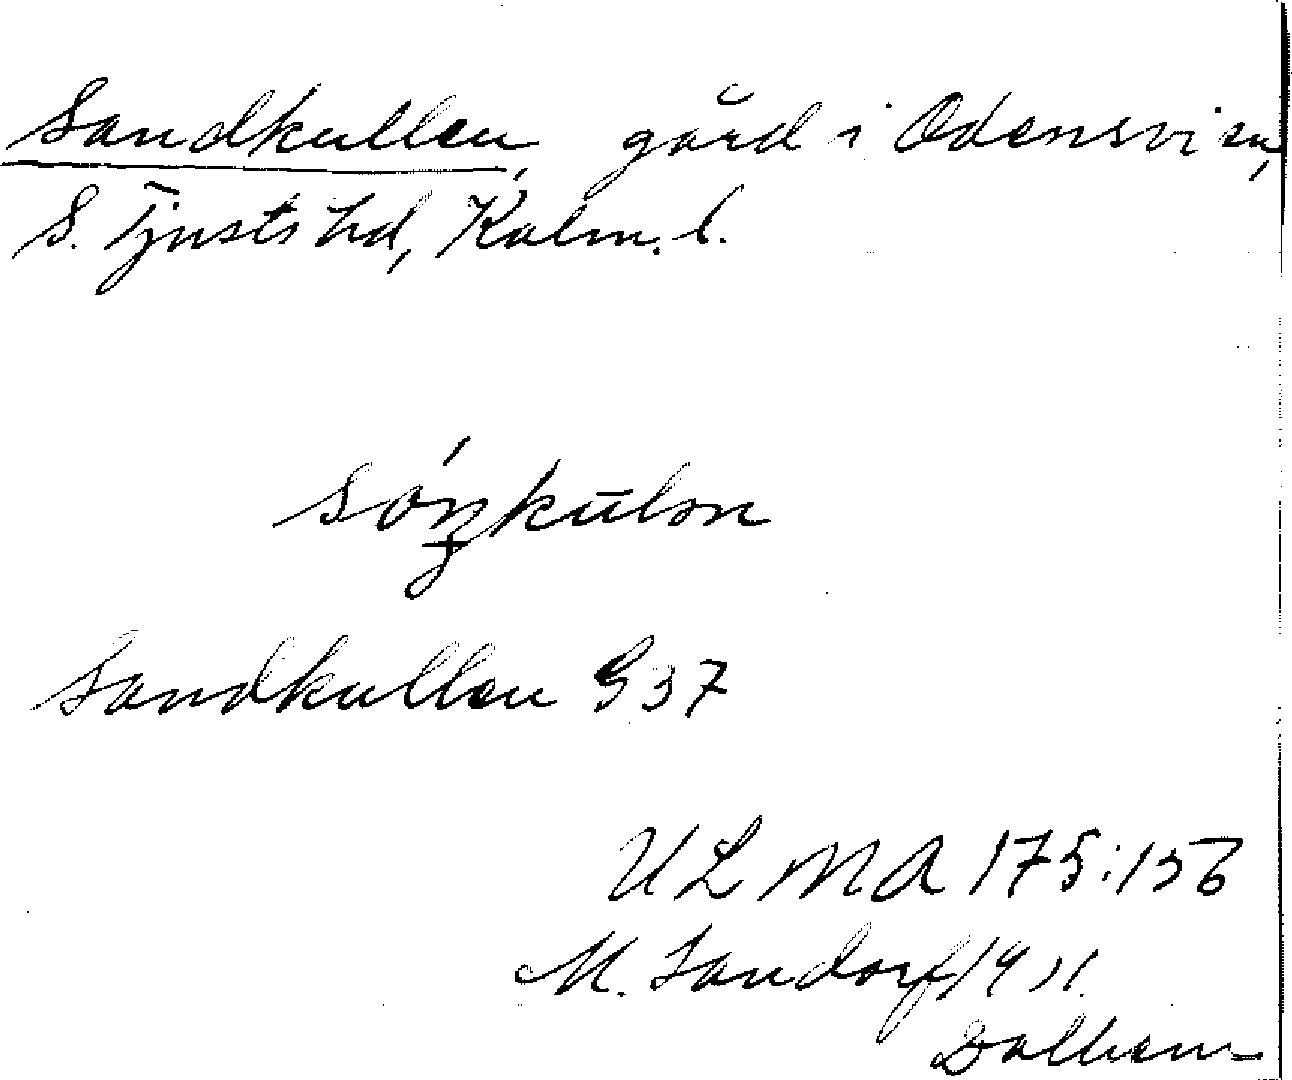 Sandkullen, gård i Odensvi sn,
S. Tjusts hd, Kalm. l.
Sandkullen G 37
ULMA 175:156
M. Sandorf 19
Dalhem